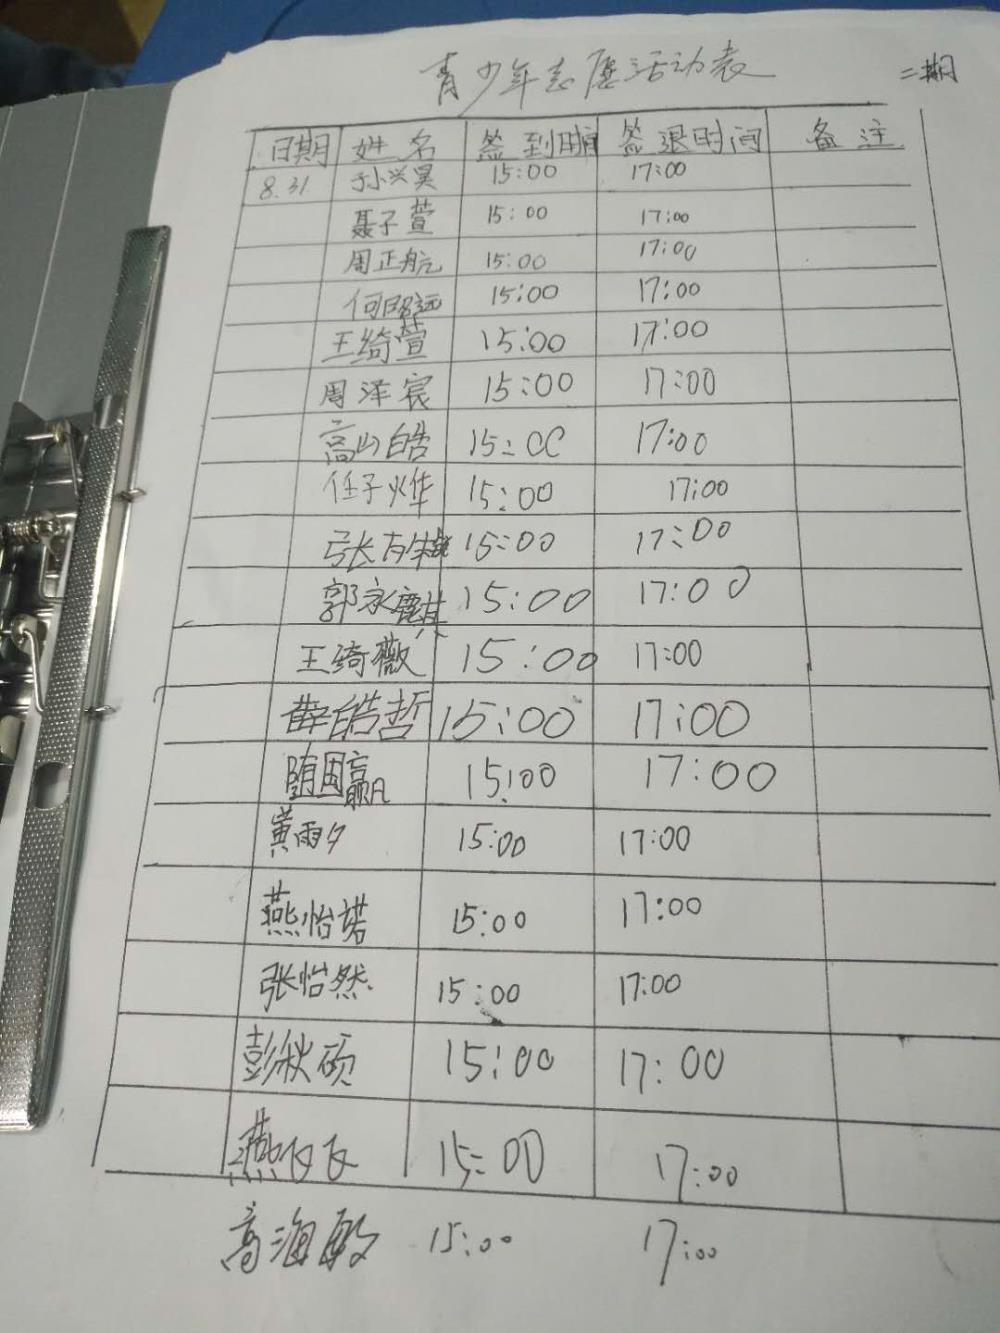 青少年志愿活动表 二期
日期 姓名 签到时间 签退时间 备注
8.31 孙兴昊 15:00 17:00
聂子萱 15:00 17:00
周正航 15:00 17:00
何昭远 15:00 17:00
王绮萱 15:00 17:00
周泽宸 15:00 17:00
高山皓 15:00 17:00
任子烨 15:00 17:00
15:00 17:00
郭永麒 15:00 17:00
王绮薇 15:00 17:00
薛皓哲 15:00 17:00
随国赢 15:00 17:00
黄雨夕 15:00 17:00
燕怡诺 15:00 17:00
张怡然 15:00 17:00
彭秋硕 15:00 17:00
燕飞飞 15:00 17:00
高海敏 15:00 17:00